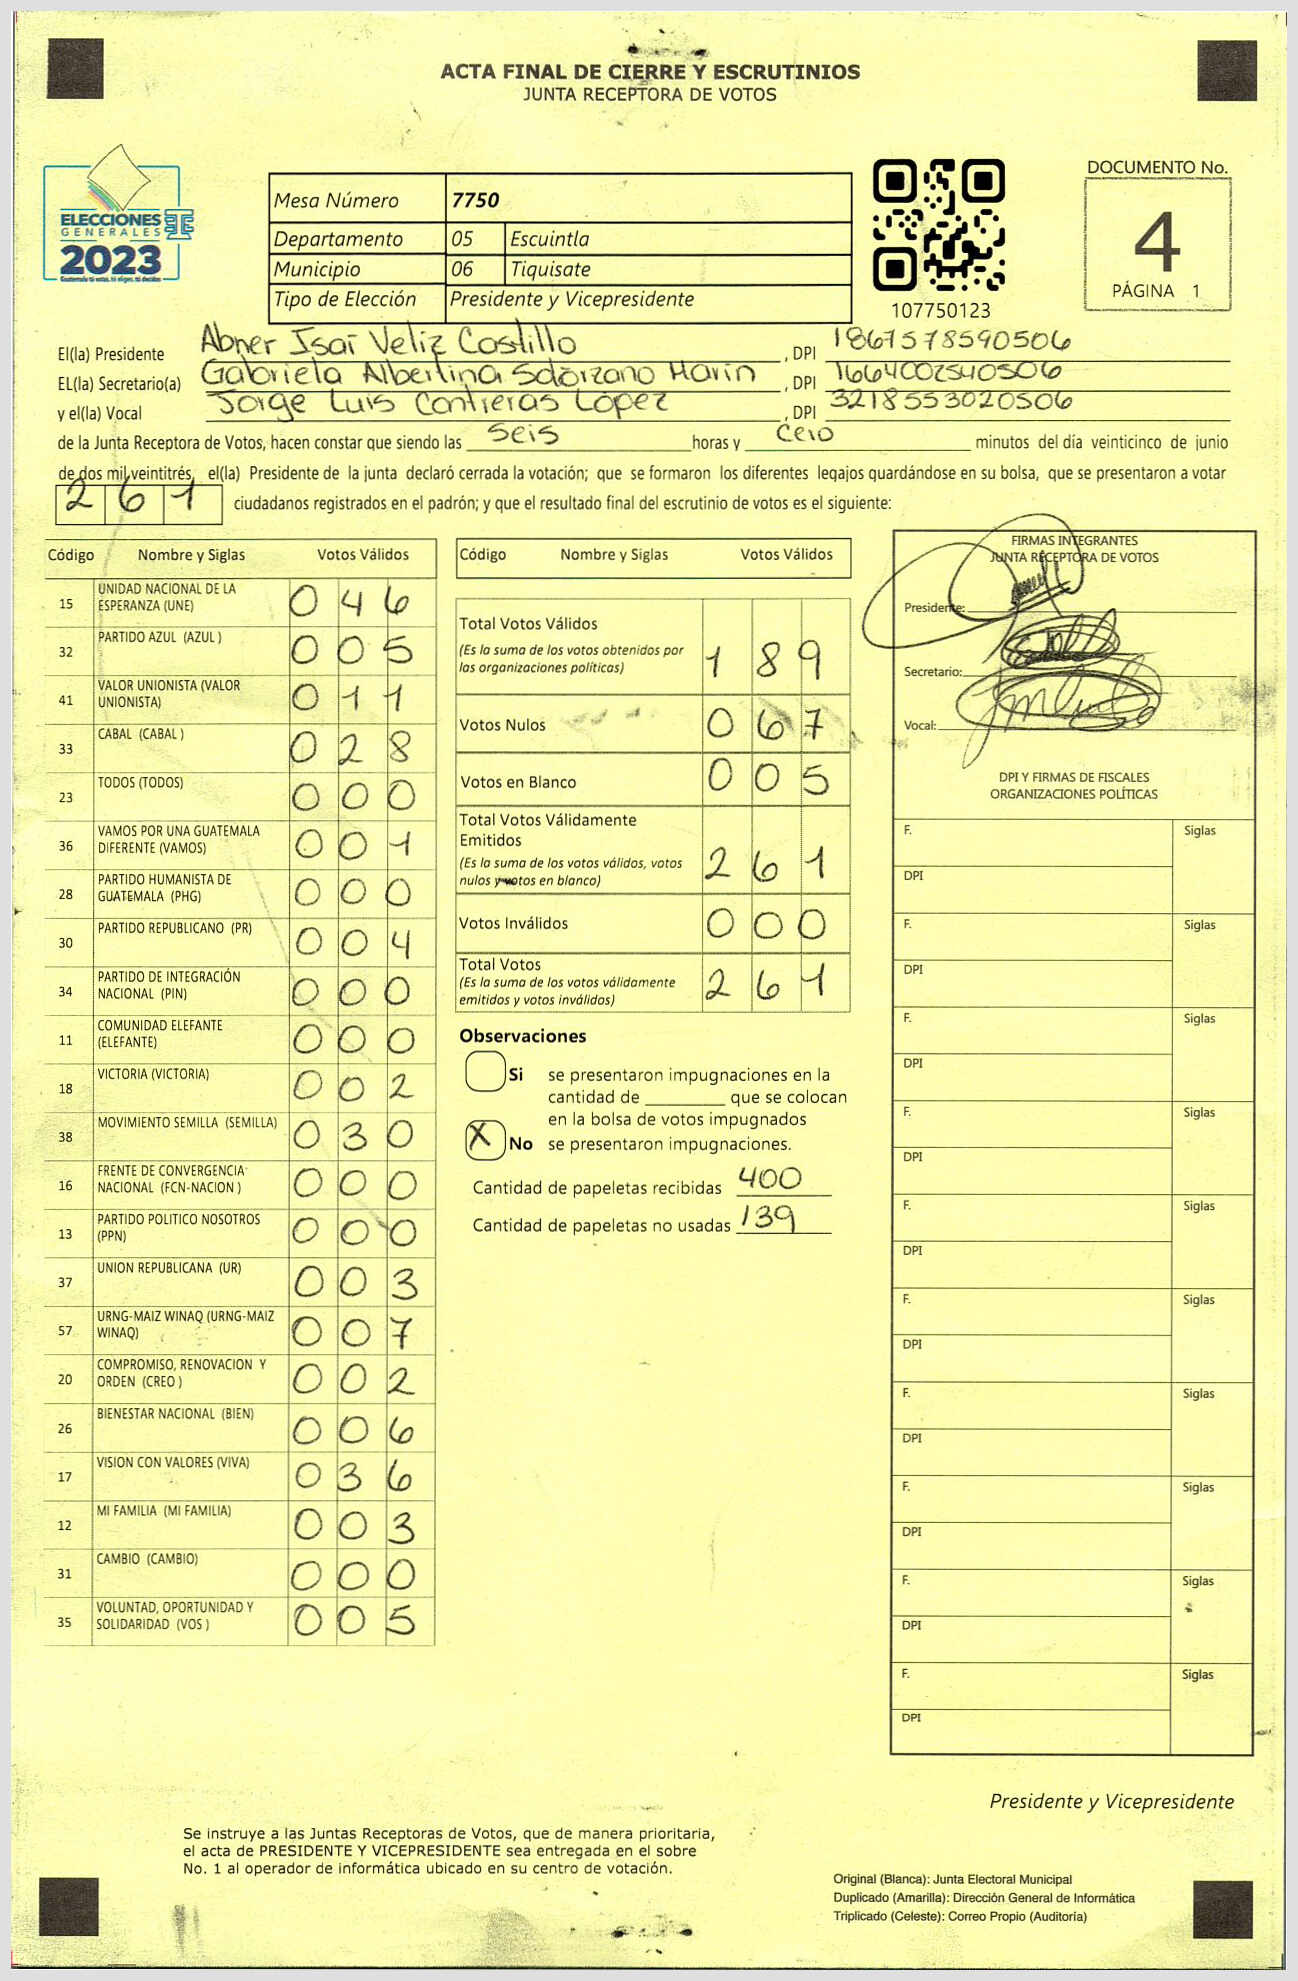 ACTA FINAL DE CIERRE Y ESCRUTINIOS
JUNTA RECEPTORA DE VOTOS
ELECCIONES
GENERALES
2023
Mesa Número 7750
Departamento 05 Escuintla
Municipio 06 Tiquisate
Tipo de Elección Presidente y Vicepresidente
107750123
DOCUMENTO No.
4
PÁGINA 1
El(la) Presidente Abner Isaí Veliz Castillo, DPI 1867578590506
EL(la) Secretario(a) Gabriela Albertina Solorzano Marin, DPI 1664002540506
y el(la) Vocal Jorge Luis Contreras López, DPI 3218553020506
de la Junta Receptora de Votos, hacen constar que siendo las seis horas y cero minutos del día veinticinco de junio
de dos mil veintitrés, el(la) Presidente de la junta declaró cerrada la votación; que se formaron los diferentes legajos guardándose en su bolsa, que se presentaron a votar
261 ciudadanos registrados en el padrón; y que el resultado final del escrutinio de votos es el siguiente:
Código Nombre y Siglas Votos Válidos
15 UNIDAD NACIONAL DE LA ESPERANZA (UNE) 046
32 PARTIDO AZUL (AZUL ) 005
41 VALOR UNIONISTA (VALOR UNIONISTA) 011
33 CABAL (CABAL ) 028
23 TODOS (TODOS) 000
36 VAMOS POR UNA GUATEMALA DIFERENTE (VAMOS) 001
28 PARTIDO HUMANISTA DE GUATEMALA (PHG) 000
30 PARTIDO REPUBLICANO (PR) 004
34 PARTIDO DE INTEGRACIÓN NACIONAL (PIN) 000
11 COMUNIDAD ELEFANTE (ELEFANTE) 000
18 VICTORIA (VICTORIA) 002
38 MOVIMIENTO SEMILLA (SEMILLA) 030
16 FRENTE DE CONVERGENCIA NACIONAL (FCN-NACION ) 000
13 PARTIDO POLITICO NOSOTROS (PPN) 000
37 UNION REPUBLICANA (UR) 003
57 URNG-MAIZ WINAQ (URNG-MAIZ WINAQ) 007
20 COMPROMISO, RENOVACION Y ORDEN (CREO ) 002
26 BIENESTAR NACIONAL (BIEN) 006
17 VISION CON VALORES (VIVA) 036
12 MI FAMILIA (MI FAMILIA) 003
31 CAMBIO (CAMBIO) 000
35 VOLUNTAD, OPORTUNIDAD Y SOLIDARIDAD (VOS ) 005
Código Nombre y Siglas Votos Válidos
Total Votos Válidos 189
(Es la suma de los votos obtenidos por
las organizaciones políticas)
Votos Nulos 067
Votos en Blanco 005
Total Votos Válidamente
Emitidos 261
(Es la suma de los votos válidos, votos
nulos y votos en blanco)
Votos Inválidos 000
Total Votos 261
(Es la suma de los votos válidamente
emitidos y votos inválidos)
Observaciones
Si se presentaron impugnaciones en la
cantidad de ________ que se colocan
en la bolsa de votos impugnados
X No se presentaron impugnaciones.
Cantidad de papeletas recibidas 400
Cantidad de papeletas no usadas 139
FIRMAS INTEGRANTES
JUNTA RECEPTORA DE VOTOS
Presidente:
Secretario:
Vocal:
DPI Y FIRMAS DE FISCALES
ORGANIZACIONES POLÍTICAS
F. Siglas
DPI
F. Siglas
DPI
F. Siglas
DPI
F. Siglas
DPI
F. Siglas
DPI
F. Siglas
DPI
F. Siglas
DPI
F. Siglas
DPI
F. Siglas
DPI
F. Siglas
DPI
Presidente y Vicepresidente
Se instruye a las Juntas Receptoras de Votos, que de manera prioritaria,
el acta de PRESIDENTE Y VICEPRESIDENTE sea entregada en el sobre
No. 1 al operador de informática ubicado en su centro de votación.
Original (Blanca): Junta Electoral Municipal
Duplicado (Amarilla): Dirección General de Informática
Triplicado (Celeste): Correo Propio (Auditoría)